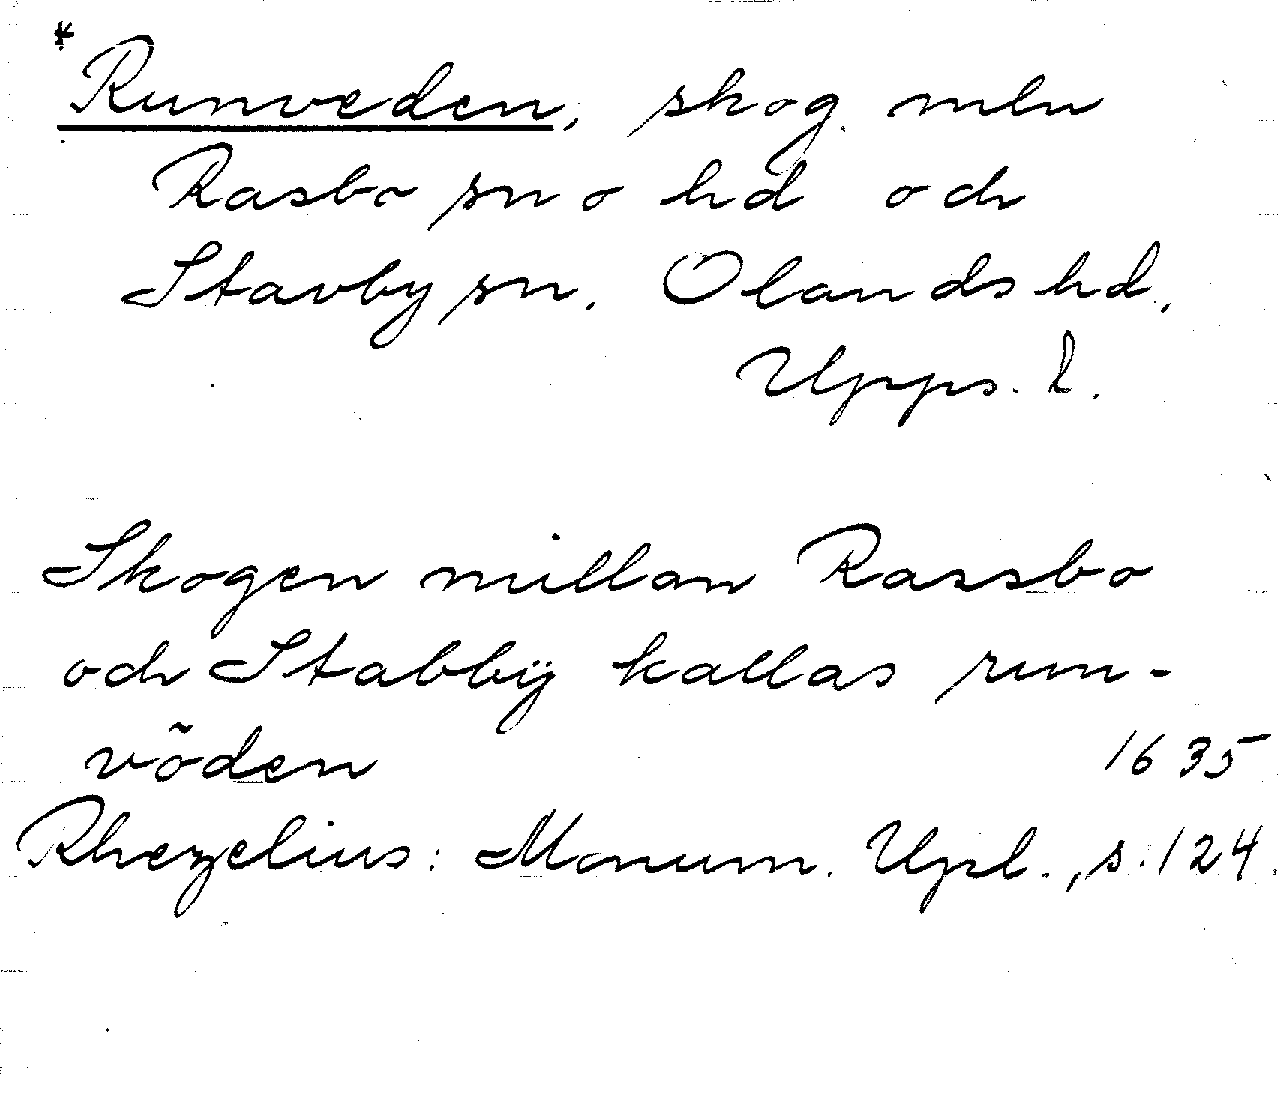 *Runveden, skog mln
Rasbo sn o hd och
Stavby sn, Olands hd,
Upps. l.
Skogen millan Rassbo
och Stabbÿ kallas run-
võden 1635
Rhezelius: Monum. Upl., s. 124.